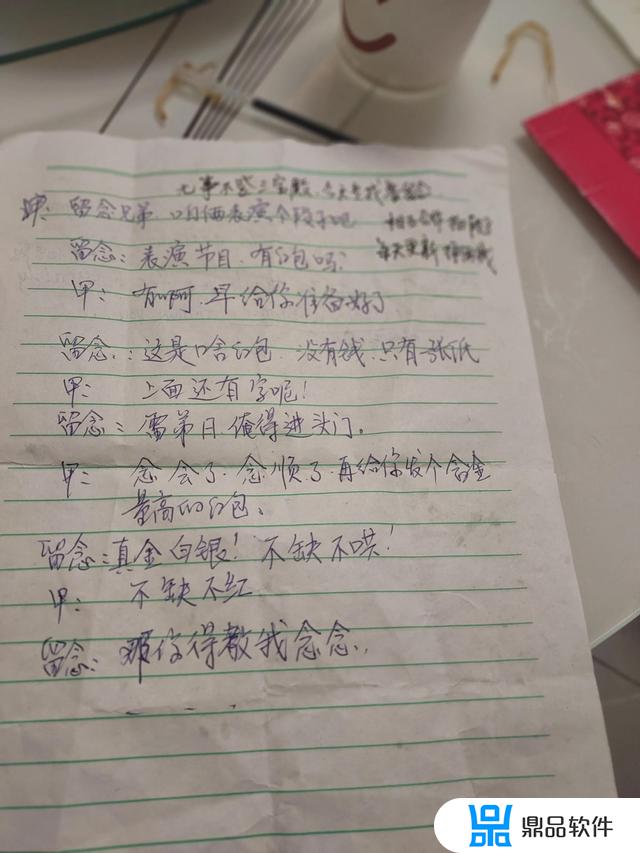 无事不登三宝殿.今天来找
甲: 留念兄弟.咱俩表演个段子吧
每天更新
留念: 表演节目.有红包吗?
甲: 有啊.早给你准备好了
留念: 这是啥红包.没有钱.只有一张纸
甲: 上面还有字呢!
留念: 俺得进头门。
甲: 念会了.念顺了.再给你发个含金
量高的红包。
留念: 真金白银! 不缺不哄!
甲: 不缺不红
留念: 那你得教我念念.
鼎品软件